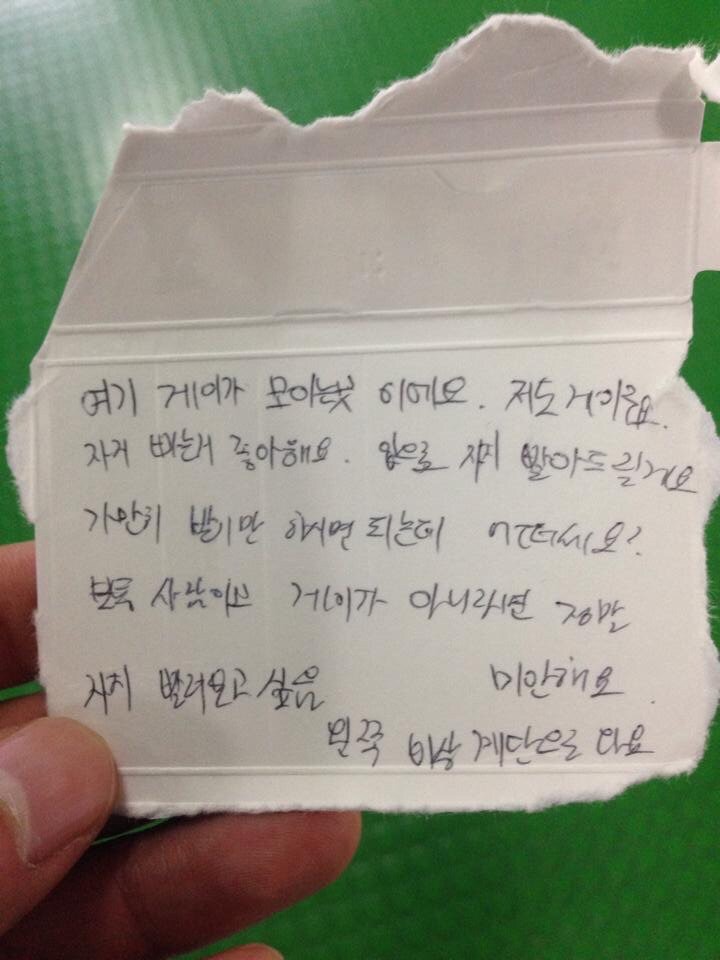 여기 게이가 모이는곳 이에요. 저도 게이구요.
자지 빠는거 좋아해요. 입으로 자지 빨아드릴게요
가만히 받기만 하시면 되는데 어떠세요?
보통 사람이고 게이가 아니라면 정말
자지 빨려오고 싶음 미안해요.
왼쪽 비상 계단으로 와요